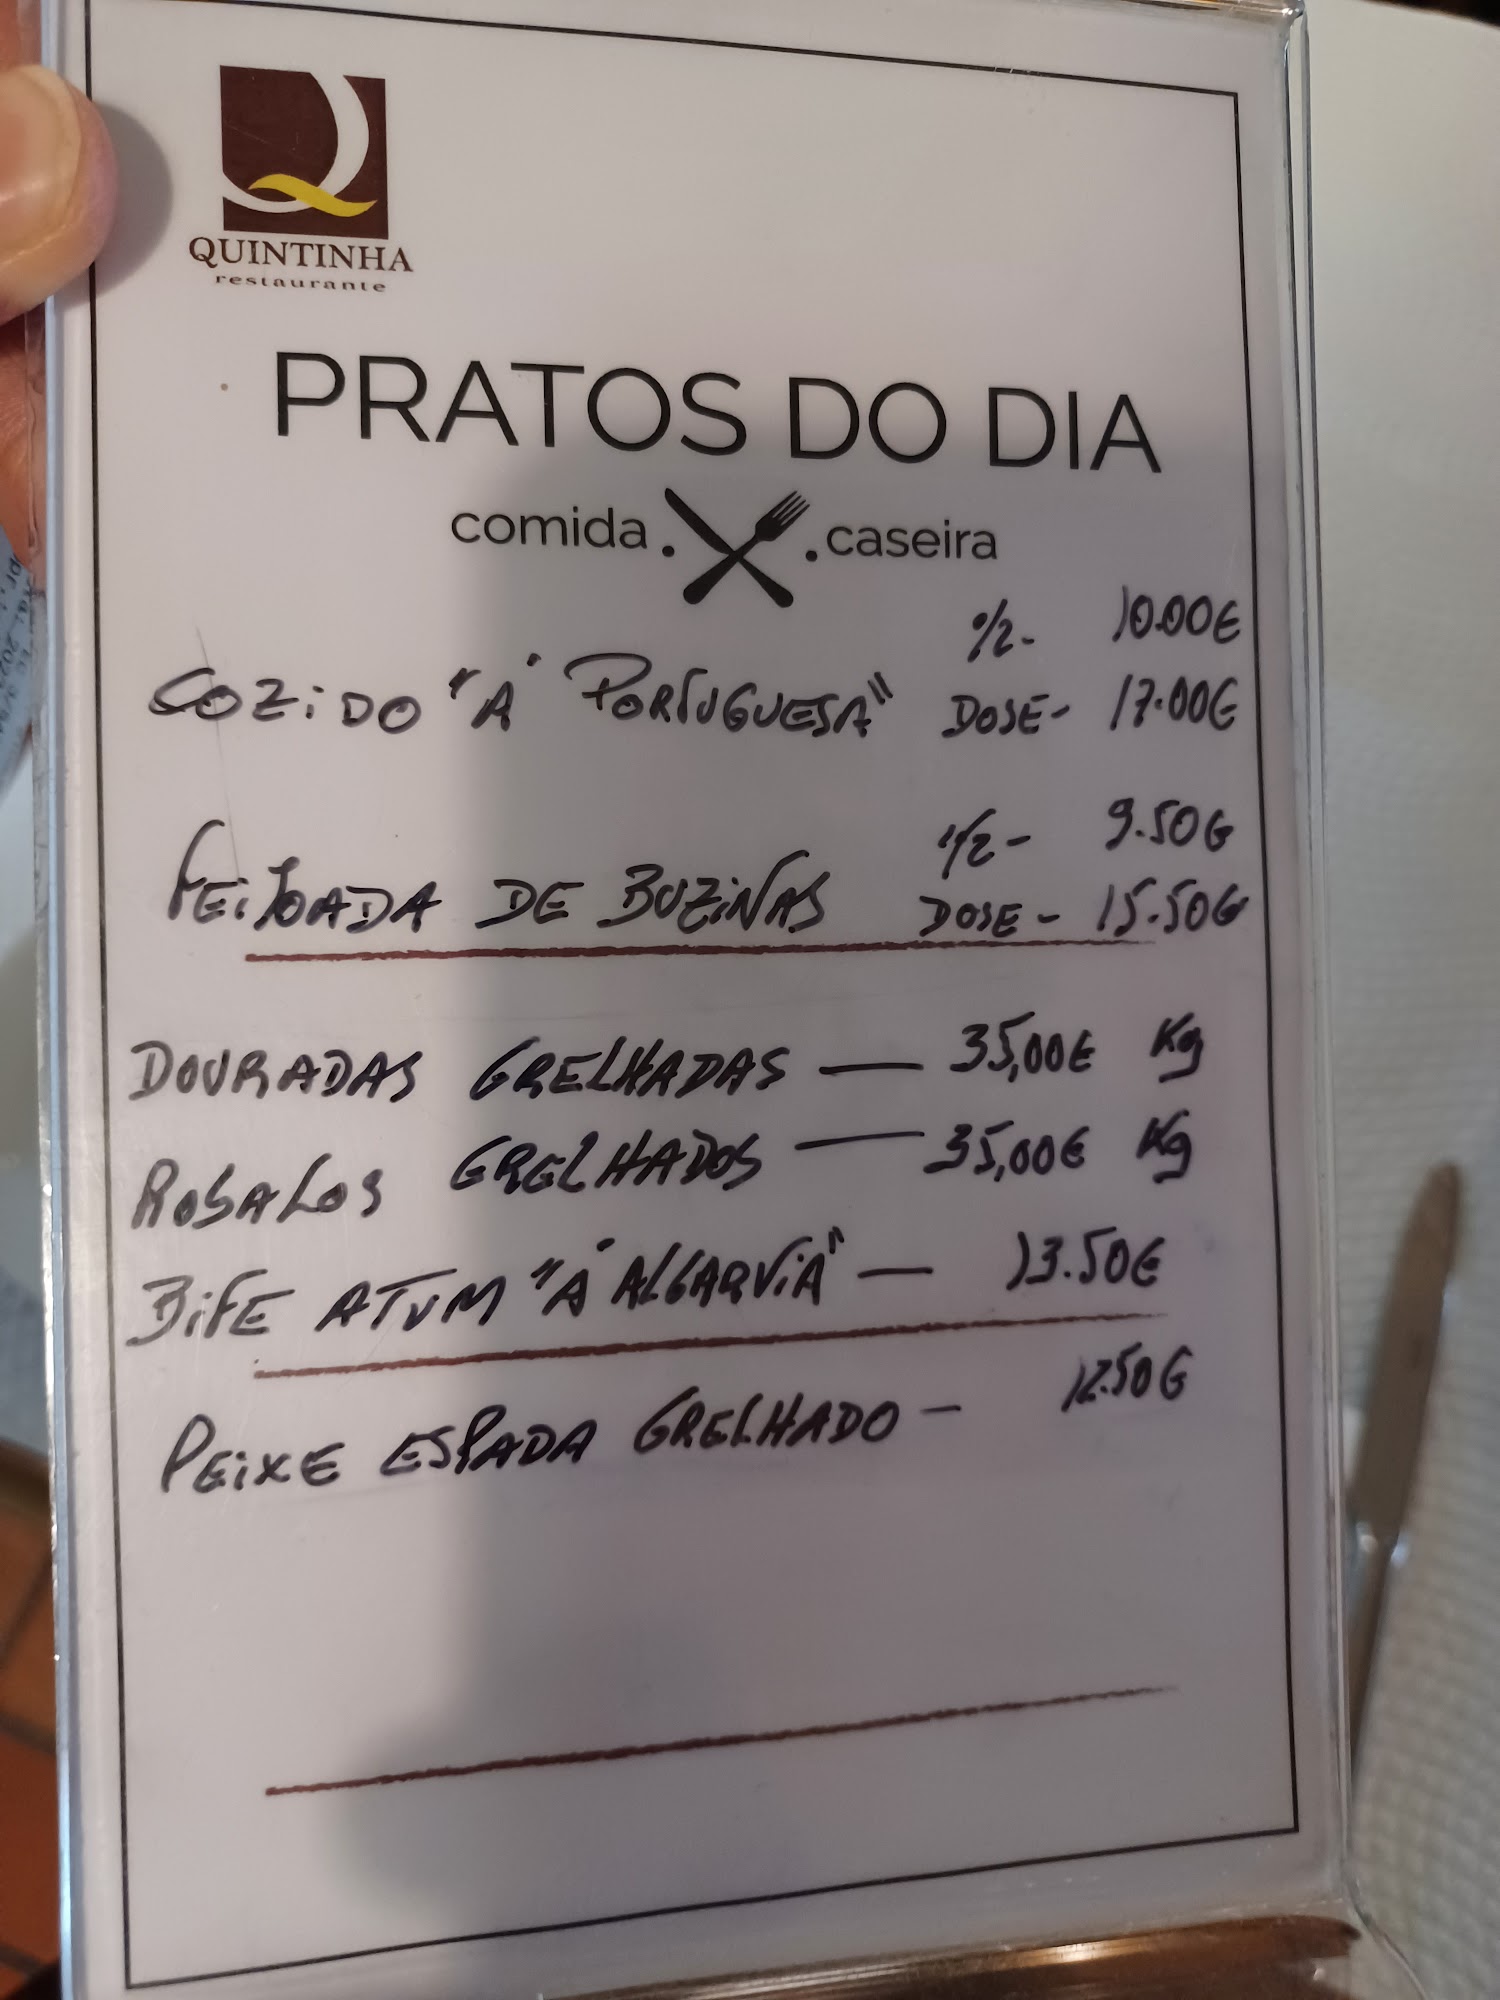 QUINTINHA
restaurante
PRATOS DO DIA
comida . . caseira
1/2 - 10.00€
COZIDO "Á PORTUGUESA" DOSE - 17.00€
1/2 - 9.50€
FEIJOADA DE BUZINAS DOSE - 15.50€
DOURADAS GRELHADAS — 35,00€ Kg
ROBALOS GRELHADOS — 35,00€ Kg
BIFE ATUM "Á ALGARVIA" — 13.50€
PEIXE ESPADA GRELHADO - 12.50€